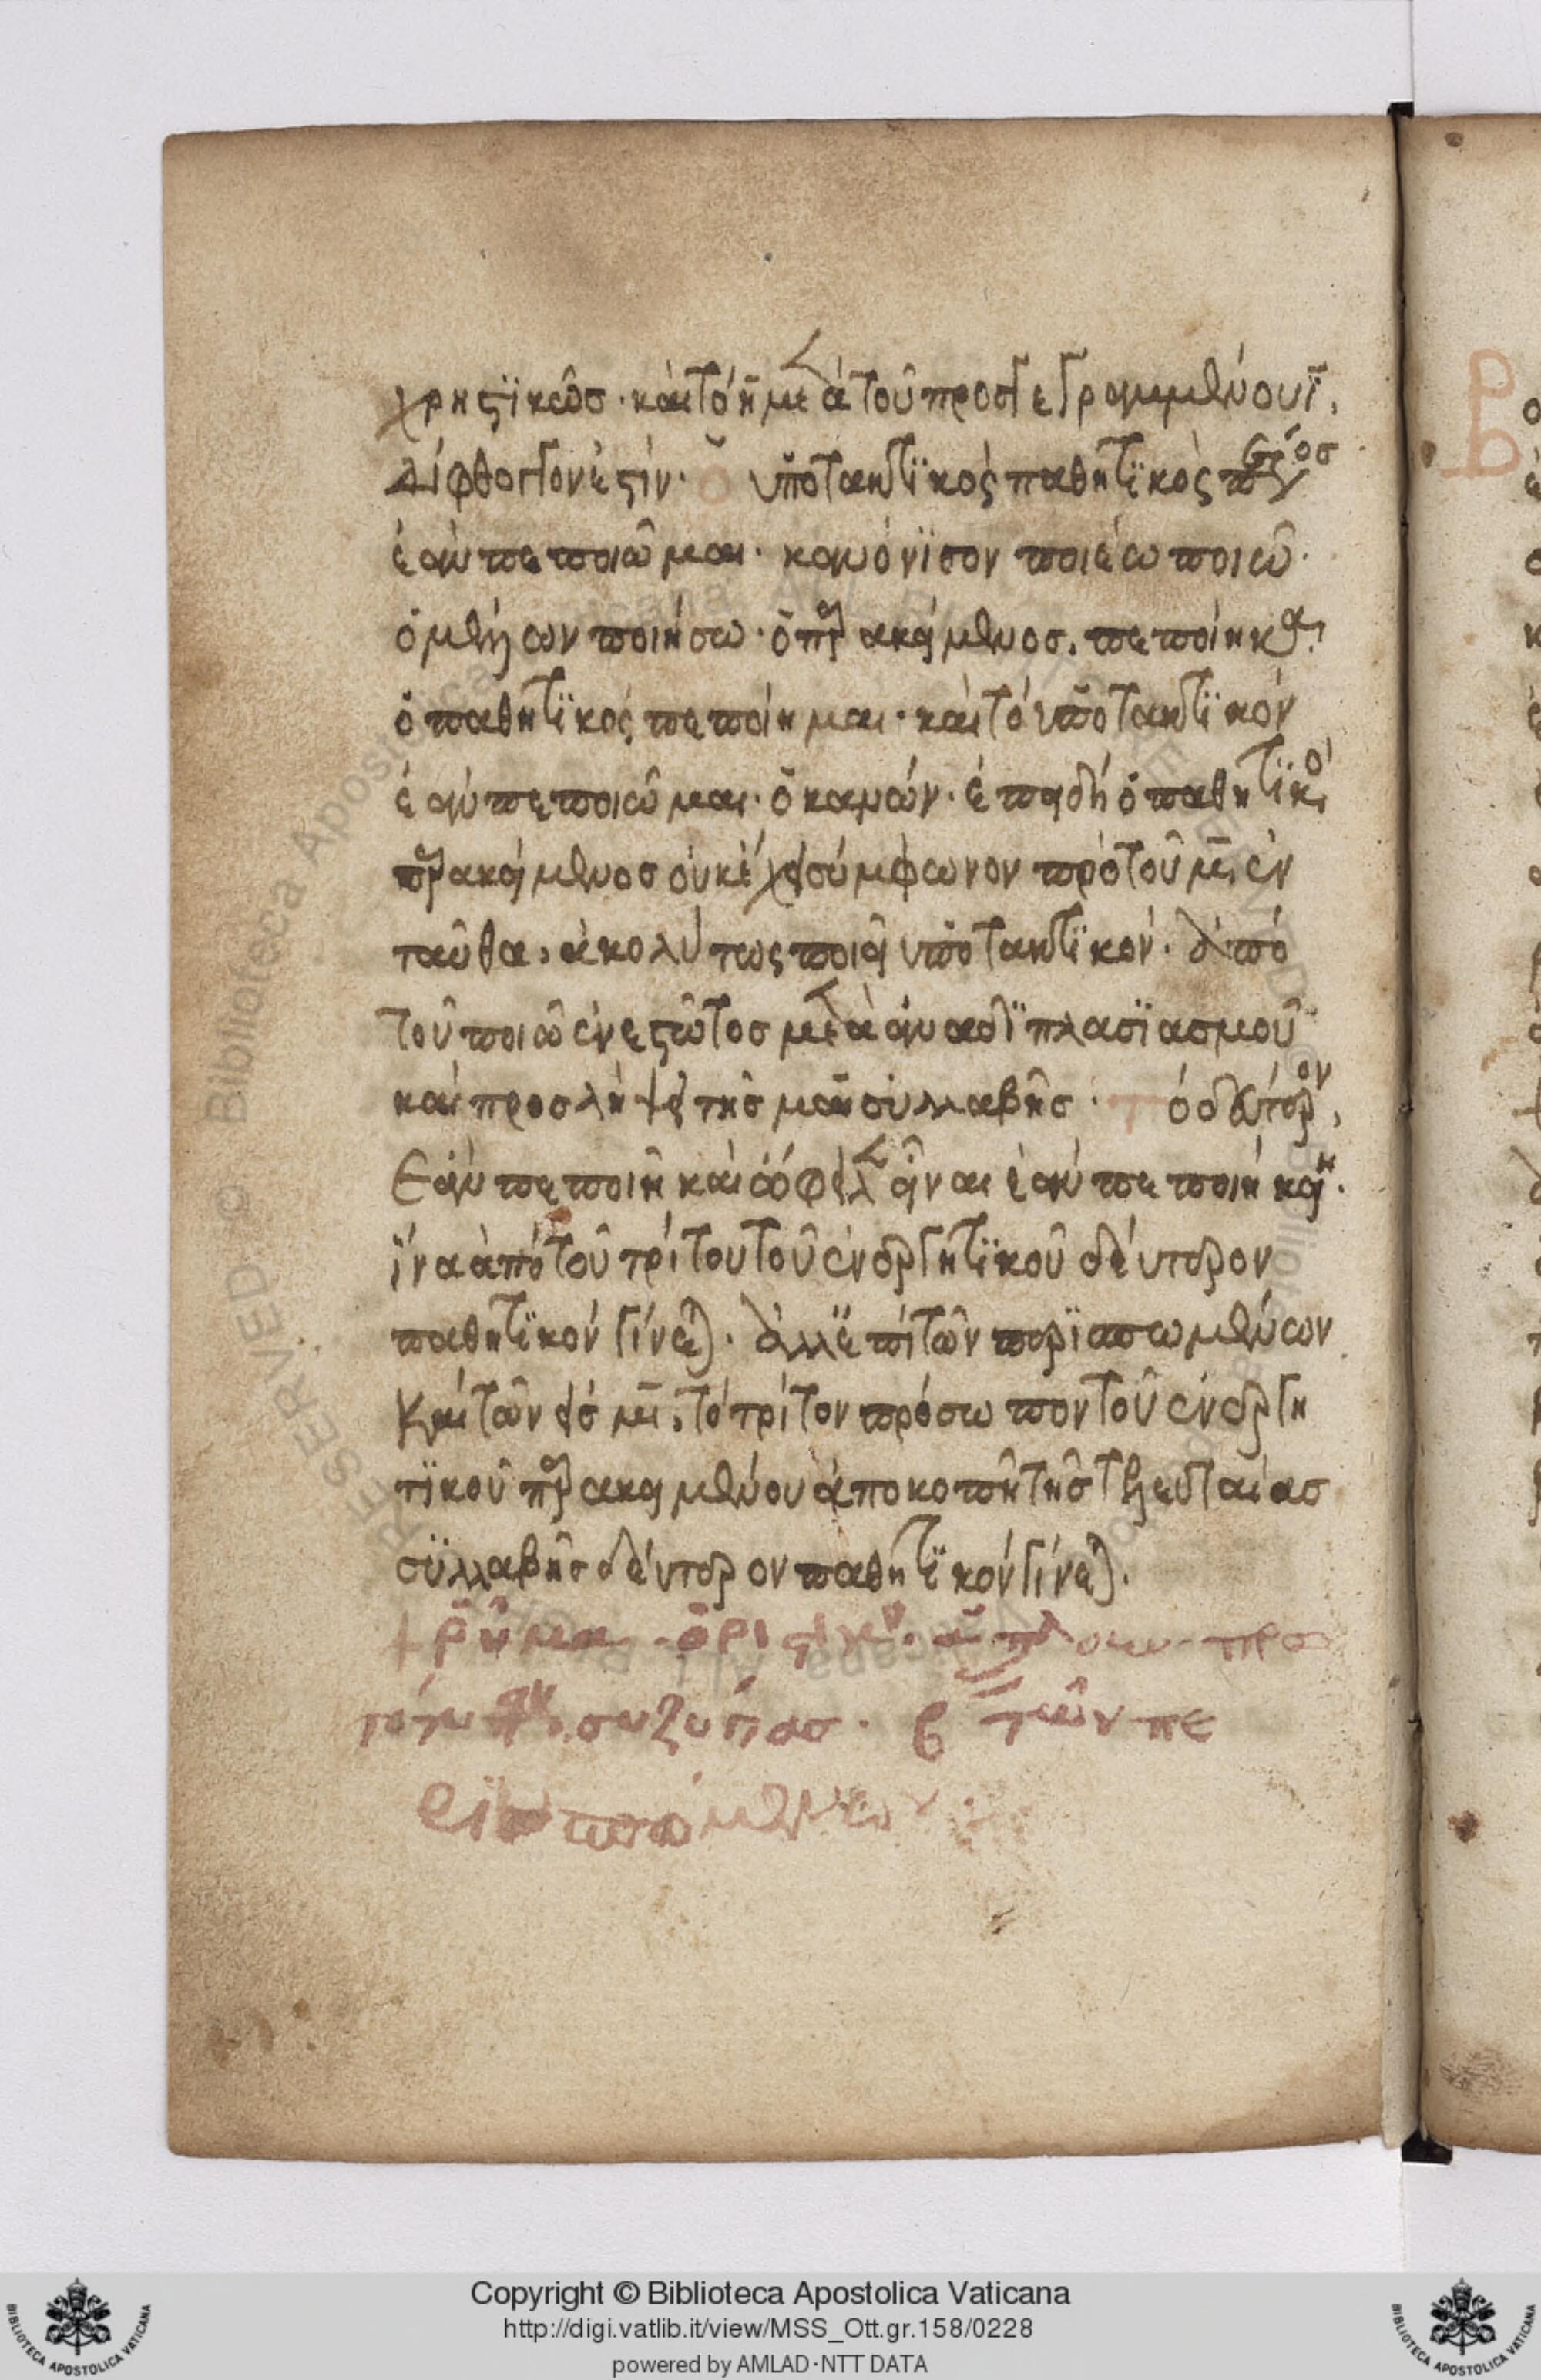 χρηστϊκῶς· καὶ τὸ η μετὰ τοῦ προσγεγραμμένου ϊ,
δίφθογγον ἐστίν· ὁ ὑποτακτϊκὸς παθητϊκὸς
ἐὰν πεποιῶμαι· κανόνϊσον ποιέω ποιῶ·
ὁ μέλλων ποιήσω· ὁ παρακείμενος, πεποίηκα·
ὁ παθητϊκὸς πεποίημαι· καὶ τὸ ὑποτακτϊκὸν
ἐὰν πεποιῶμαι· ὁ κανών· ἐπειδὴ ὁ παθητϊκὸ
παρακείμενος οὐκ ἔχει σύμφωνον πρὸ τοῦ μ, ἐν
ταῦθα, ἀκολύτως ποιεῖ ὑποτακτϊκόν· ἀπὸ
τοῦ ποιῶ ἐνεστῶτος μετὰ ἀναδϊπλασϊασμοῦ
καὶ προσλήψει τῆς μαι συλλαβῆς· τὸ δεύτερον,
Ἐὰν πεποιῆ καὶ ὤφειλεν εἶναι ἐὰν πεποιήκη·
ἵνα ἀπὸ τοῦ τρίτου τοῦ ἐνεργητϊκοῦ δεύτερον
παθητϊκὸν γίνεται· ἀλλ' ἐπὶ τῶν περϊσπωμένων
καὶ τῶν εἰς μι, τὸ τρίτον πρόσωπον τοῦ ἐνεργη
τϊκοῦ παρακειμένου ἀποκοπῆ τῆς τελευταίας
σϋλλαβῆς δεύτερον παθητϊκὸν γίνεται.
συζυγίας· β τῶν πε
Copyright © Biblioteca Apostolica Vaticana
http://digi.vatlib.it/view/MSS_Ott.gr.158/0228
powered by AMLAD·NTT DATA